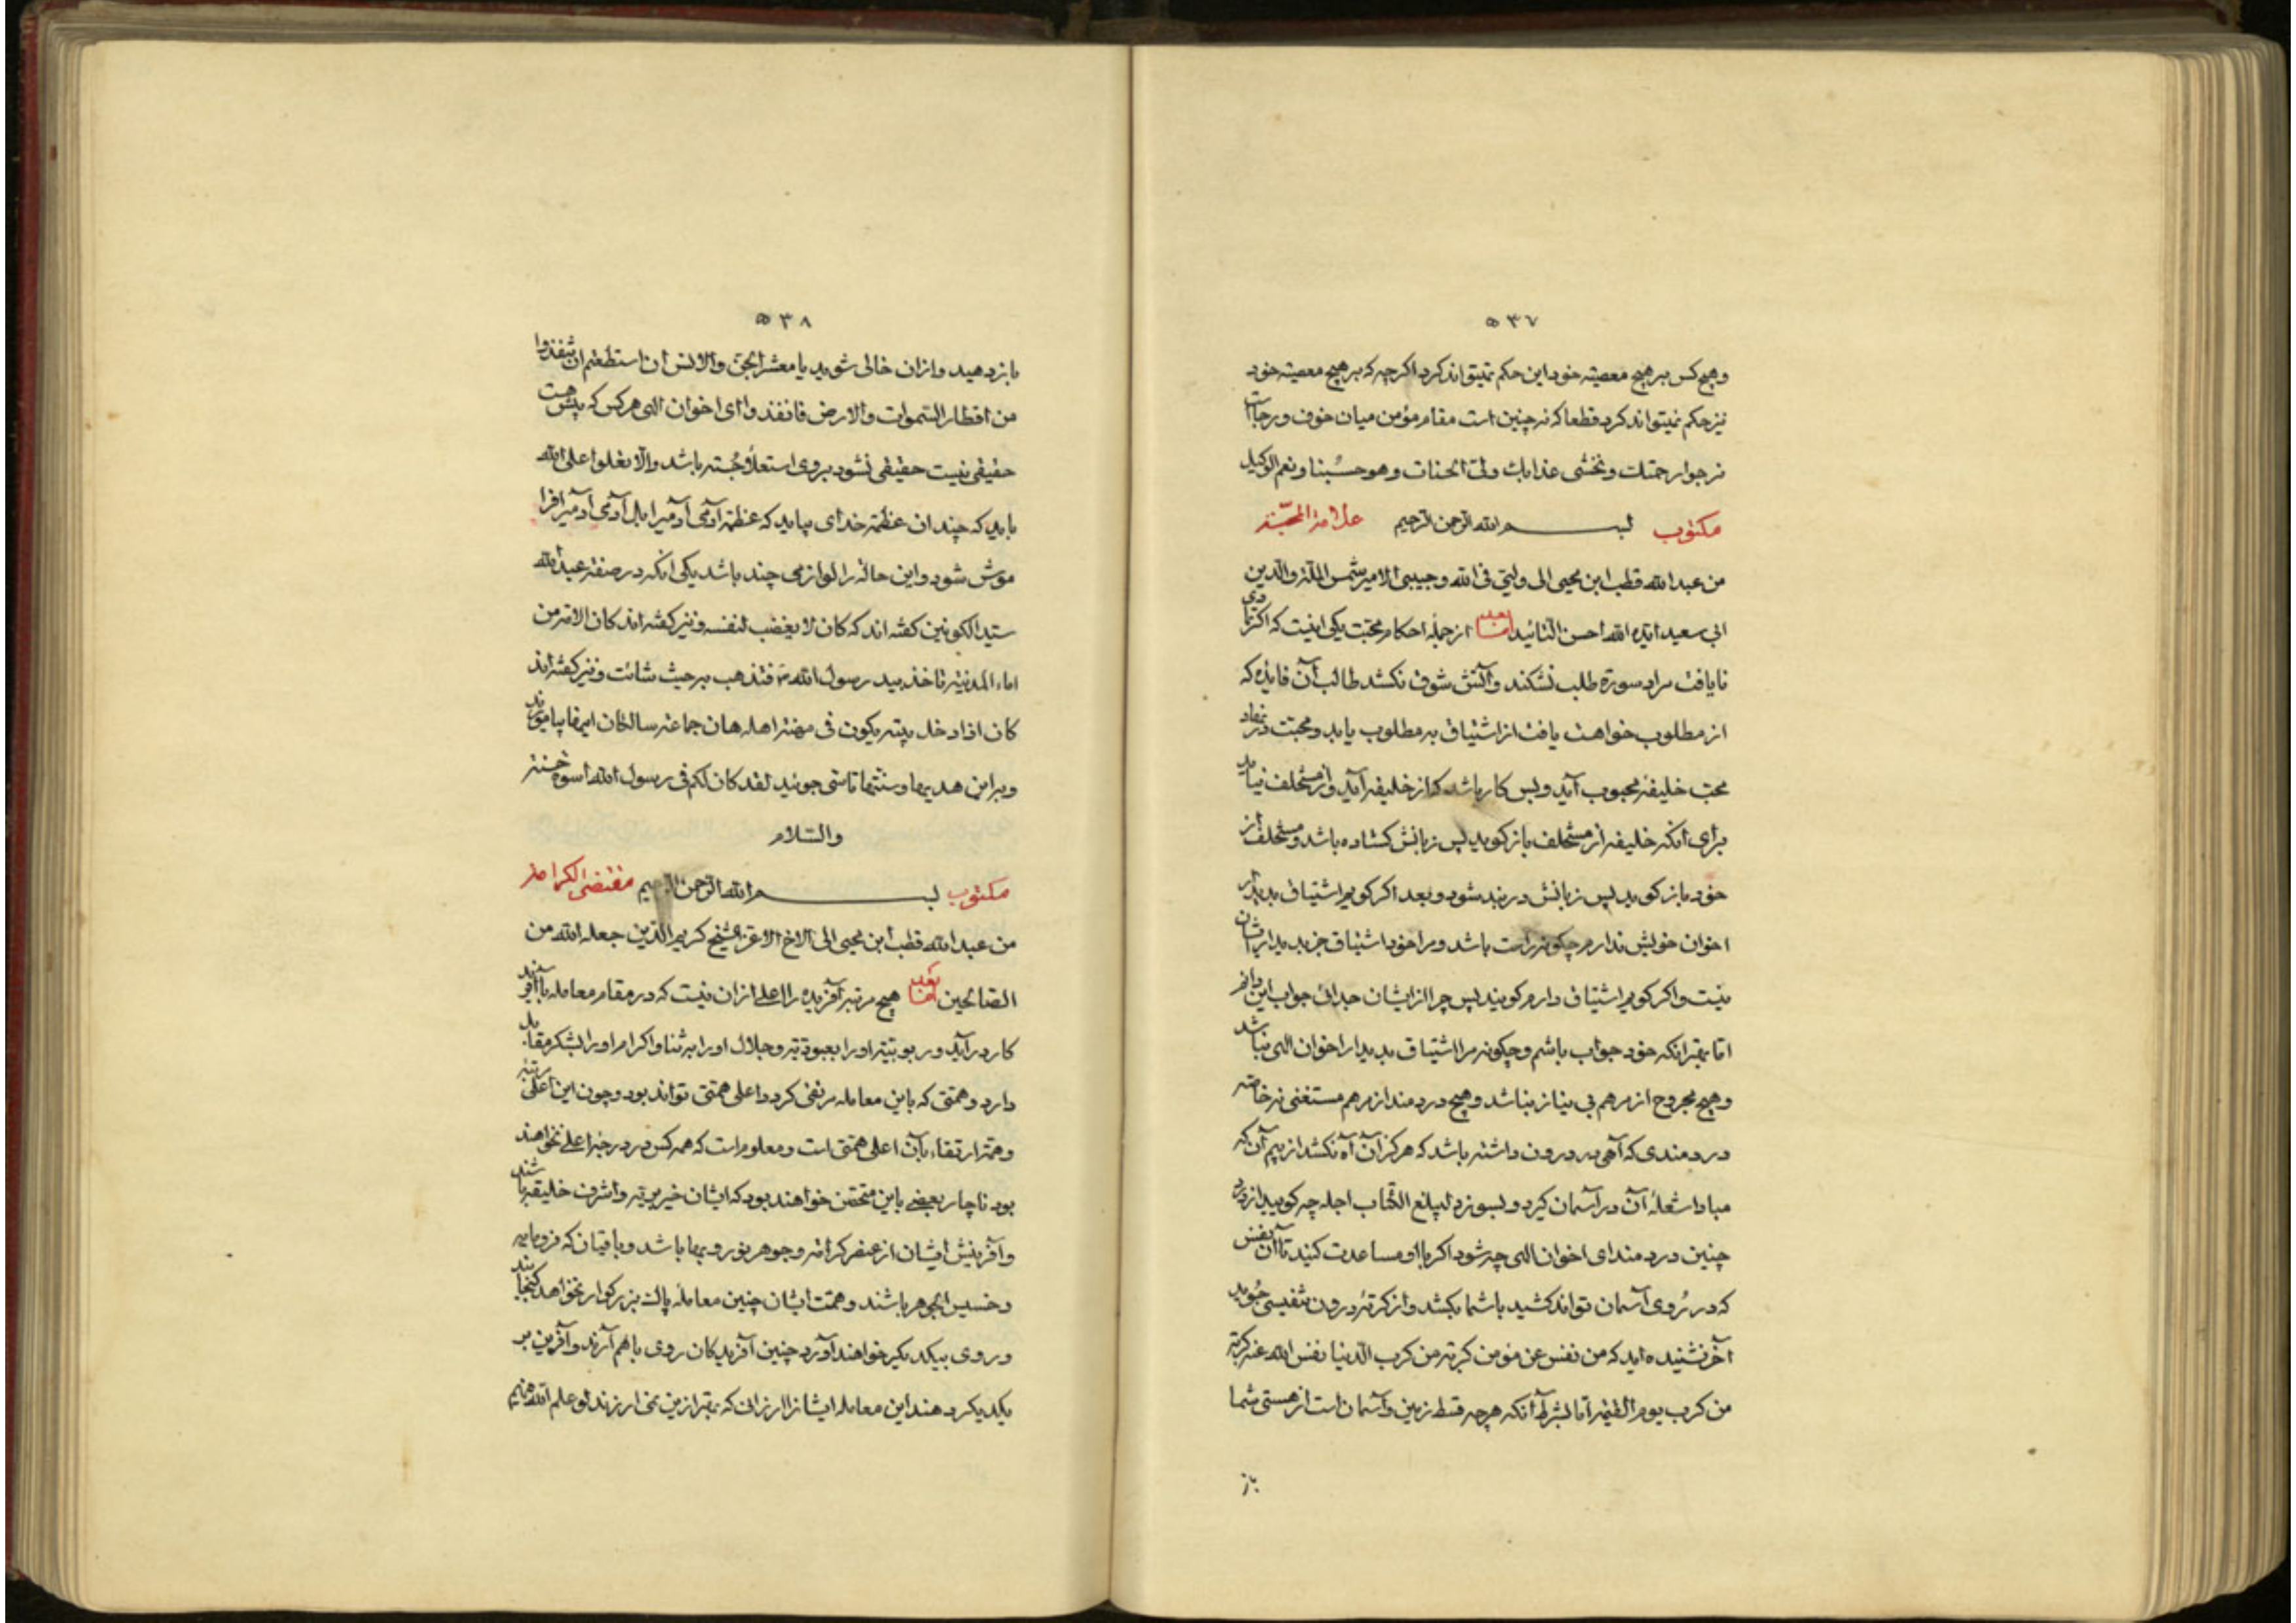 ۵۳۷
وهیچ کس بر هیچ معصیته خود این حکم نمیتواند کرد اکرچه که بر هیچ معصیته خود
نیز حکم نمیتواند کرد قطعا که نه چنین است مقام مؤمن میان خوف و رجاست
نرجوا رحمتک ونخشی عذابک ولک الحسنات وهو حسبنا ونعم الوکیل
مکتوب بسم الله الرحمن الرحیم علامة المحبّة
من عبد الله قطب ابن محیی الی ولیّی فی الله وحبیبی الامیر شمس الملّة والدّین
ابی سعید ایّده الله احسن التّائید امّا بعد از جملهٔ احکام محبّت یکی اینست که اکر تا دی
نایافت مراد سورة طلب نشکند وآتش شوق نکشد طالب آن فایده که
از مطلوب خواهد یافت از اشتیاق به مطلوب یابد ومحبّت در نهاد
محبّ خلیفهٔ محبوب آید وبس کار باشد که از خلیفه آید واز مستخلف نیاید
برای آنکه خلیفه از مستخلف باز کوید پس زبانش کشاده باشد ومستخلف از
خود باز کوید پس زبانش در بند شود وبعد اکر کویم اشتیاق بدیدار
اخوان خویش ندارم چکونه راست باشد ومرا خود اشتیاق جز بدیدار ایشان
نیست واکر کویم اشتیاق دارم کویند پس چرا از ایشان جدائی جواب این دانم
امّا بهتر آنکه خود جواب باشم وچکونه مرا اشتیاق بدیدار اخوان الهی نباشد
وهیچ مجروح از مرهم بی نیاز نباشد وهیچ دردمند از مرهم مستغنی نه خاصّه
دردمندی که آهی در درون داشته باشد که هرکز آن آه نکشد از بیم آن که
مبادا شعلهٔ آن در آسمان کیرد وبسوزد لیبلغ الکتاب اجله چه کویید از درد
چنین دردمند ای اخوان الهی چه شود اکر با او مساعدت کنید تا آن نفس
که در روی آسمان نتواند کشید با شما بکشد واز کربهٔ درون تنفیسی جوید
آخر نشنیده اید که من نفس عن مؤمن کربة من کرب الدّنیا نفس الله عنه کربة
من کرب یوم القیمة امّا بشرط آنکه هرچه قسط زمین وآسمان است از هستی شما
باز
۵۳۸
باز دهید واز ان خالی شوید یا معشر الجنّ والانس ان استطعتم ان تنفذوا
من اقطار السّموات والارض فانفذوا ای اخوان الهی هر کس که پیش هست
حقیقی نیست حقیقی نشود بروی استعلا جسته باشد والّا تعلوا علی الله
باید که چندان عظمة خدای بیابد که عظمة آدمی آدمی را بل آدمی آدمی را فرا
موش شود واین حاله را لوازمی چند باشد یکی آنکه در صفة عبد الله
سیّد الکونین کفته اند که کان لا یغضب لنفسه ونیز کفته اند کان الامة من
اماء المدینة تاخذ بید رسول الله ص فتذهب به حیث شائت ونیز کفته اند
کان اذا دخل بیته یکون فی مهنة اهله هان جماعة سالکان اینها بیاموزید
وبر این هدیها وسنّتها تاسّی جوئید لقد کان لکم فی رسول الله اسوة حسنة
والسّلام
مکتوب بسم الله الرحمن الرحیم مقتضی الکرامة
من عبد الله قطب ابن محیی الی الاخ الاعز الشیخ کریم الدّین جعله الله من
الصّالحین امّا بعد هیچ مرتبه آفریده را اعلی از ان نیست که در مقام معامله با آفریننده
کار درآید وربوبیّته او را بعبودیّته وجلال او را به ثنا واکرام او را بشکر مقابل
دارد وهمّتی که باین معامله مرتقی کردد اعلی همّتی تواند بود وچون این اعلی رتبه
وهمّة ارتقاء بآن اعلی همّتی است ومعلوم است که همه کس در درجهٔ اعلی نخواهند
بود ناچار بعضی باین متحقّق خواهند بود که ایشان خیر بریّه واشرف خلیقه باشند
وآفرینش ایشان از عنصر کرامة وجوهر نور وبها باشد وباقیان که فرومایه
وخسیس الجوهر باشند وهمّت ایشان چنین معاملهٔ پاک بزرکوار نخواهد کنجانید
وروی بیکدیکر خواهند آورد چنین آفریدکان روی باهم آرند وآفرین بر
یکدیکر دهند این معامله ایشانرا ارزان که بهتر از این نمی ارزند لو علم الله فیهم